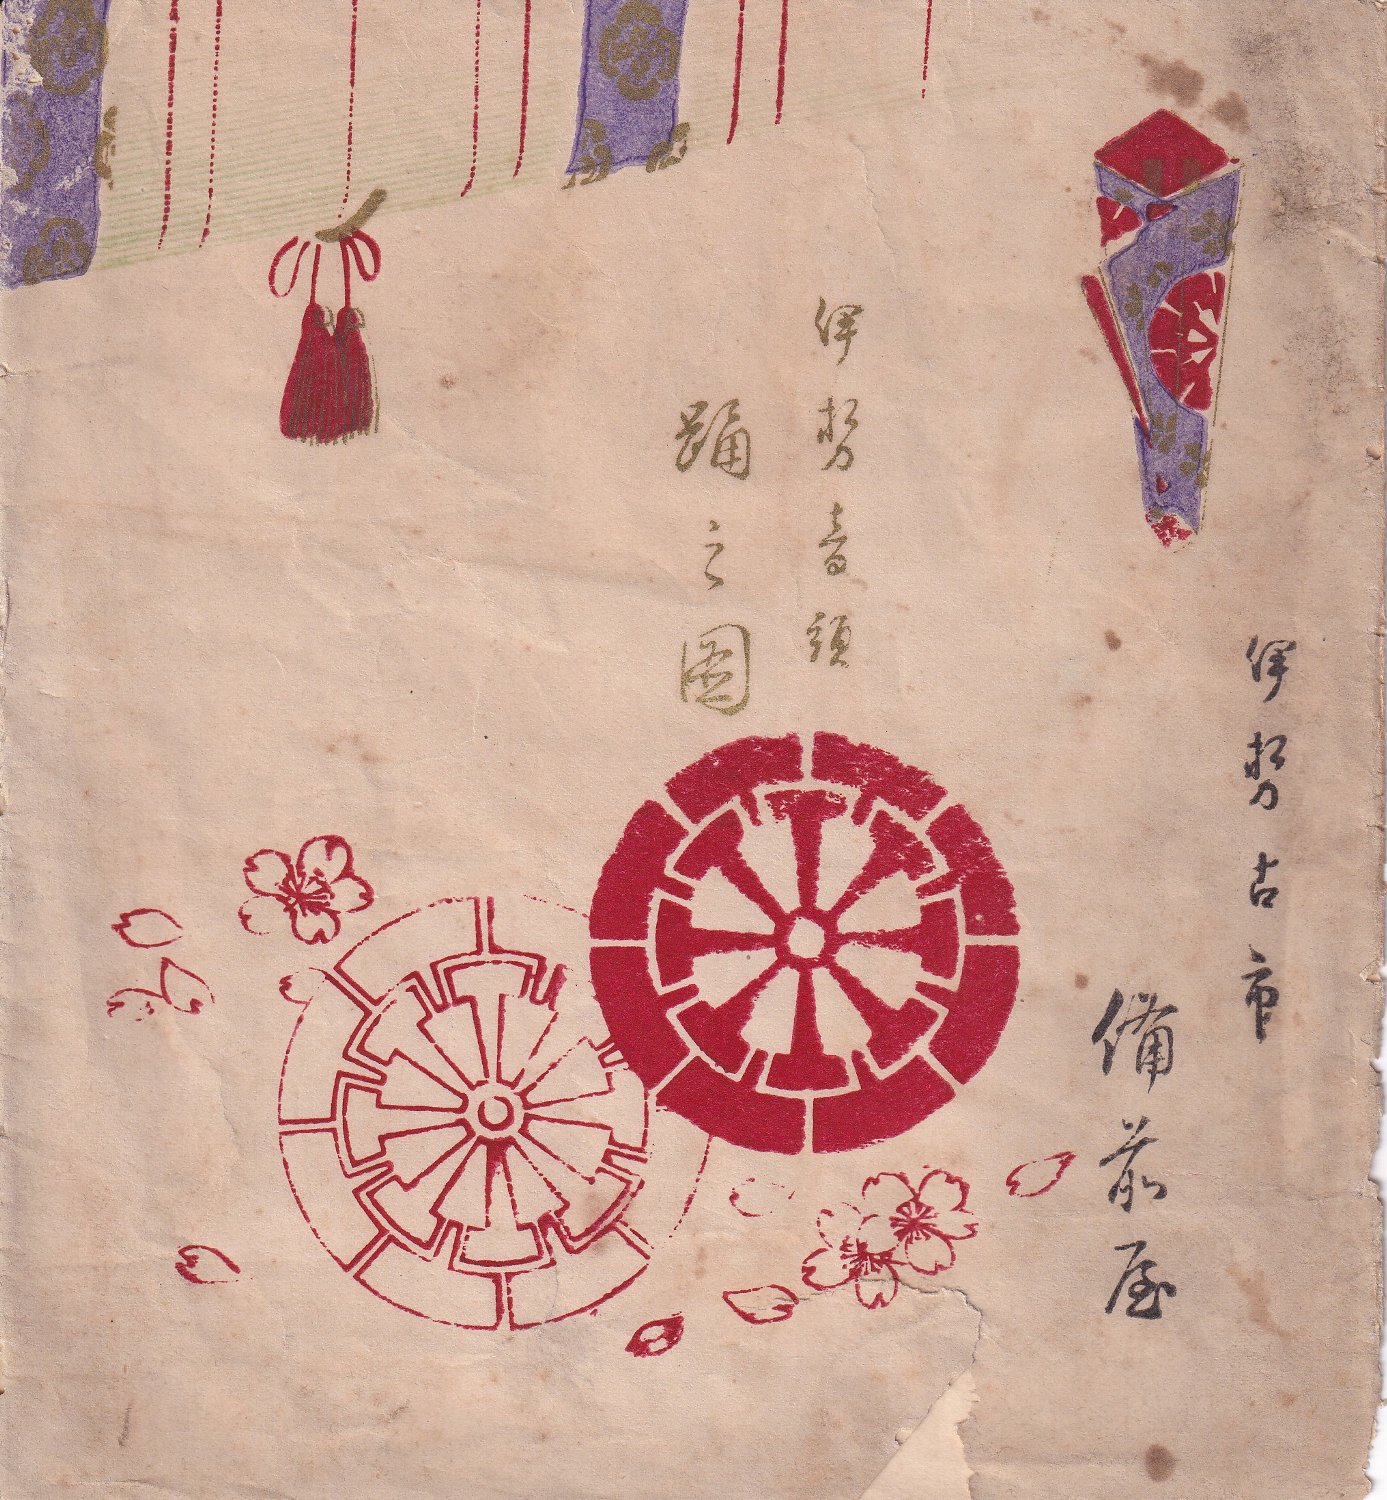 伊勢古市
備前屋
伊勢音頭
踊之圖